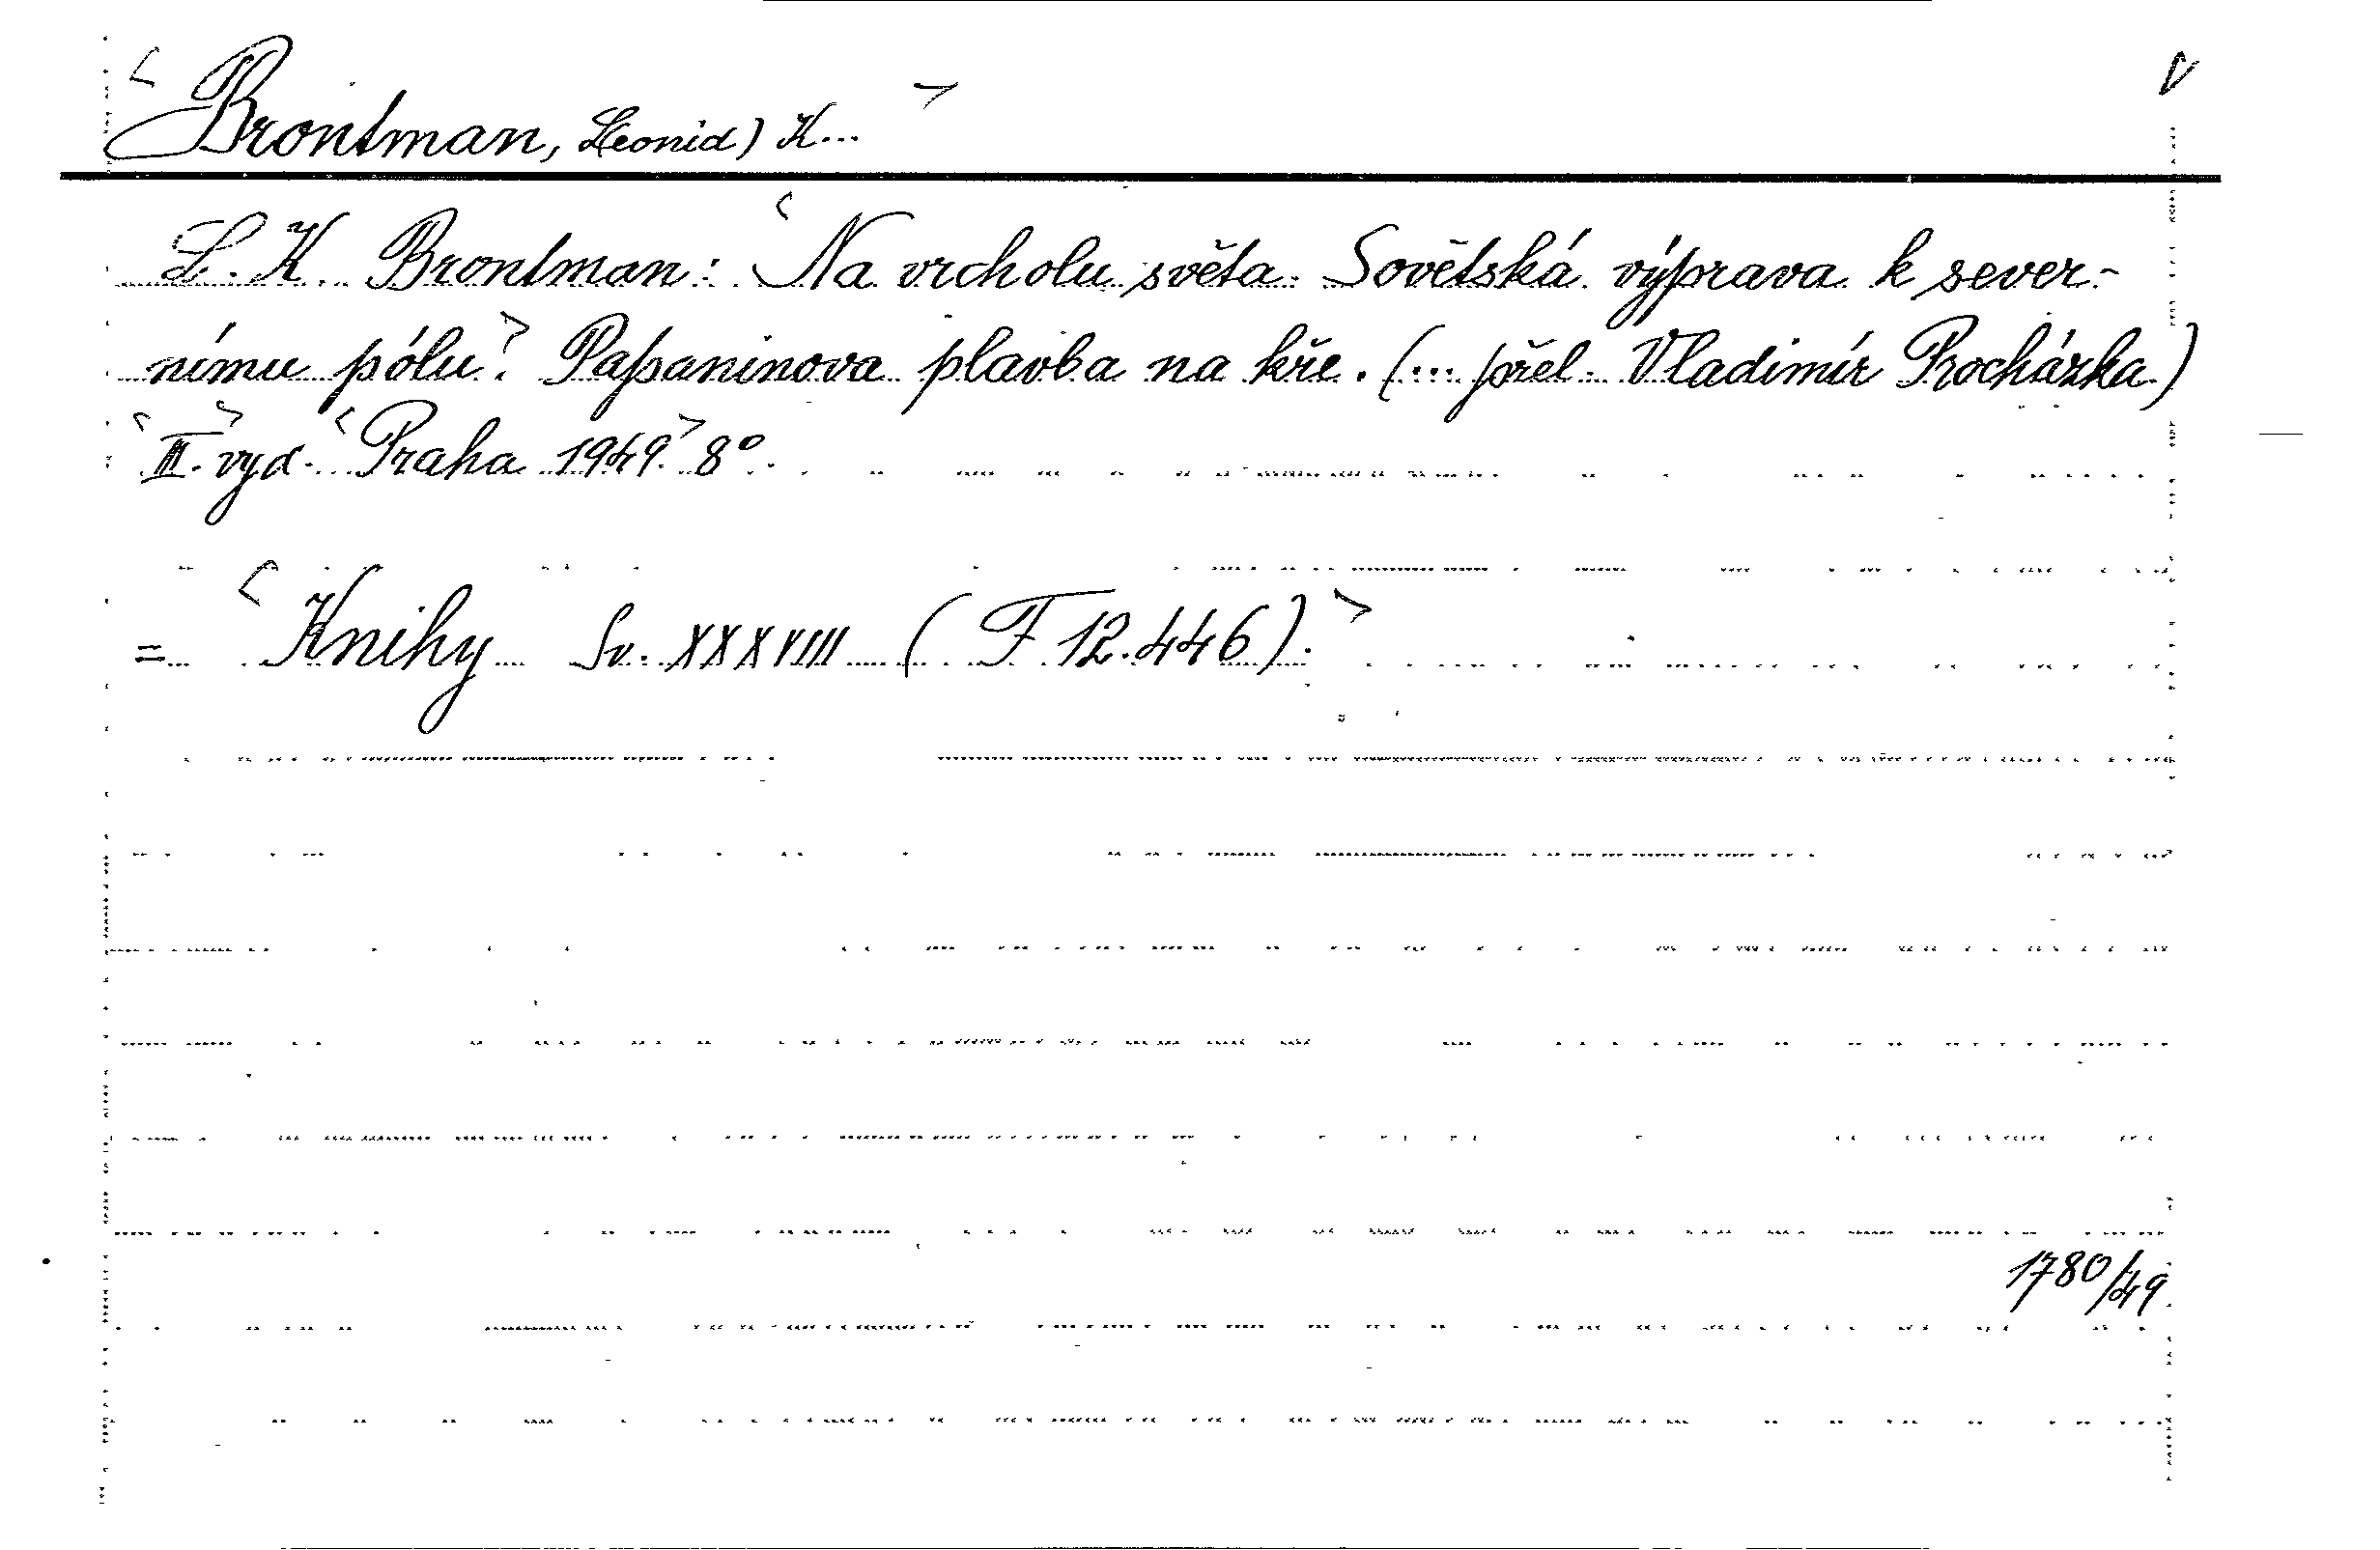 < Brontman, L(eonid) K... > V
L. K. Brontman: <Na vrcholu světa. Sovětská výprava k sever-
nímu pólu.> Papaninova plavba na kře. (... přel. Vladimír Procházka.)
<III. vyd.> <Praha 1949.> 8°.
= <Knihy Sv. XXXVIII (F 12.446).>
1780/49.